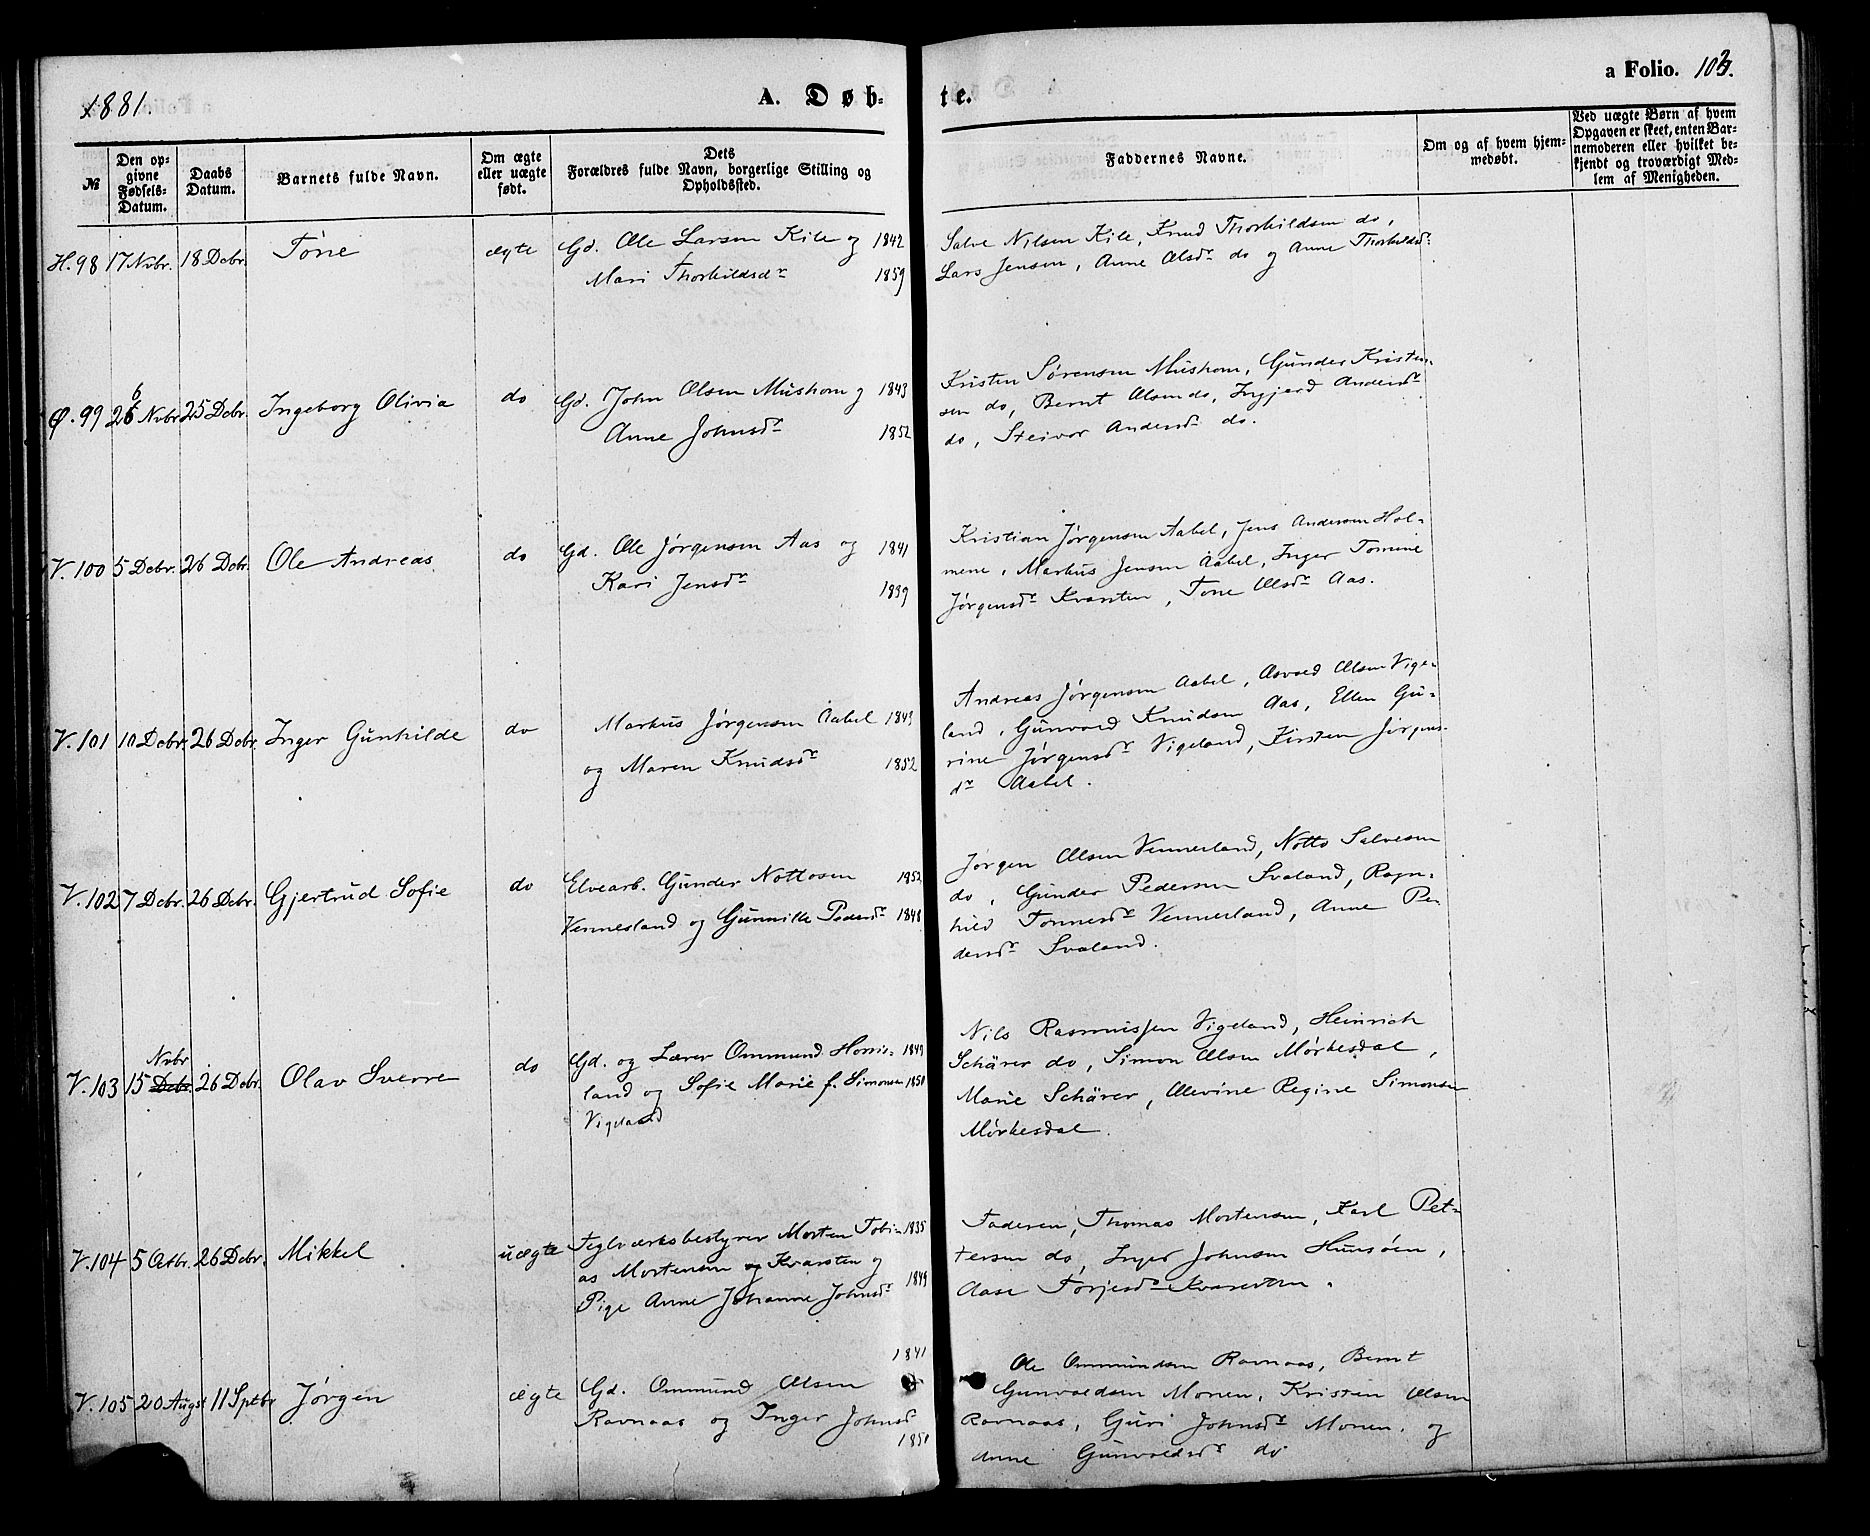 1881.
A. Døb-
te.
a Folio. 103.
№
Den op-
givne
Fødsels-
Datum.
Daabs
Datum.
Barnets fulde Navn.
Om ægte
eller uægte
født.
Dets
Forældres fulde Navn, borgerlige Stilling og
Opholdssted.
Faddernes Navne.
Om og af hvem hjem-
medøbt.
Ved uægte Børn af hvem
Opgaven er skeet, enten Bar-
nemoderen eller hvilket be-
kjendt og troværdigt Med-
lem af Menigheden.
H. 98 17 Nvbr. 18 Decbr. Tóne ægte Gd. Ole Larsen Kile og 1842
Mari Thorkildsdr 1859
Salve Nilsen Kile, Knud Thorkildsen do,
Lars Jensen, Anne Olsdr do og Anne Thorkildsdr
Ø. 99 26 Nvbr 25 Dcbr. Ingeborg Olivia do Gd. John Olsen Mushom og 1843
Anne Johnsdr 1852
Kristen Sørensen Mushom, Gunder Kristen-
sen do, Bernt Olsen do, Ingjerd Andersdr
do, Steivor Andersdr do.
V. 100 5 Dcbr. 26 Dcbr. Ole Andreas do Gd. Ole Jørgensen Aas og 1841
Kari Jensdr 1839
Kristian Jørgensen Aabel, Jens Andersen Hol-
mene, Markus Jensen Aabel, Inger Tomine
Jørgensdr Kvarsten, Tone Olsdr Aas.
V. 101 10 Dcbr. 26 Dcbr. Inger Gunhilde do Markus Jørgensen Aabel 1843
og Maren Knudsdr 1852
Andreas Jørgensen Aabel, Osvald Olsen Vige-
land, Gunvald Knudsen Aas, Ellen Gu-
rine Jørgensdr Vigeland, Kirsten Jørgens-
dr Aabel.
V. 102 7 Dcbr. 26 Dcbr. Gjertrud Sofie do Elvearb. Gunder Nottosen 1852
Vennesland og Gunnille Pedersdr 1848
Jørgen Olsen Vennesland, Notto Salvesen
do, Gunder Pedersen Svaland, Ragn-
hild Tomesdr Vennesland, Anne Pe-
dersdr Svaland.
Nvbr
V. 103 15 Dcbr. 26 Dcbr. Olav Sverre do Gd. og Lærer Ommund Horris- 1849
land og Sofie Marie f. Simonsen 1850
Vigeland
Nils Rasmussen Vigeland, Heinrich
Schärer do, Simon Olsen Mørkesdal,
Marie Schärer, Olevine Regine Simonsen
Mørkesdal.
V. 104 5 Octbr. 26 Dcbr. Mikkel uægte Teglværksbestyrer Morten Tobi- 1835
as Mortensen og Kvarsten og
Pige Anne Johanne Johnsdr 1849
Faderen, Thomas Mortensen, Karl Pet-
tersen do, Inger Johnsen Hunsøen,
Aase Torjesdr Kvarsten.
V. 105 20 Augst 11 Sptbr Jørgen ægte Gd. Ommund Olsen 1841
Ravnaas og Inger Johnsdr
1850
Ole Ommundsen Ravnaas, Bernt
Gunvaldsen Monen, Kristen Olsen
Ravnaas, Guri Johnsdr Monen, og
Anne Gunvaldsdr do